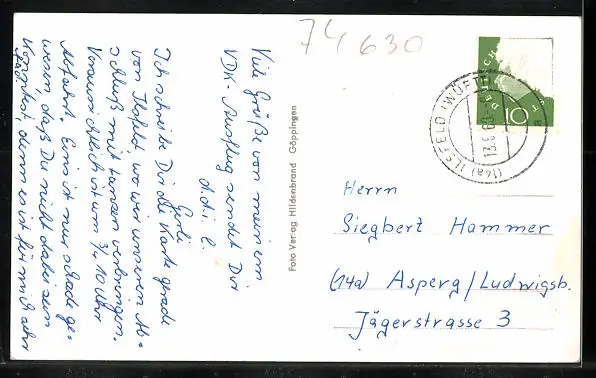 74630
Viele Grüße von meinem
VDK-Ausflug sendet Dir
Gerli
Ich schreibe Dir die Karte gerade
von Ilsfeld wo wir unseren Ab-
schluß mit tanzen verbringen.
Voraussichtlich ist um 3/4 10 Uhr
Abfahrt. Eins ist nur schade ge-
wesen, daß Du nicht dabei sein
konntest, denn es ist für mich sehr
Foto Verlag Hildenbrand Göppingen
DEUTSCHE
10
(14a) ILSFELD (WÜRTT)
Herrn
Siegbert Hammer
(14a) Asperg/Ludwigsb.
Jägerstrasse 3